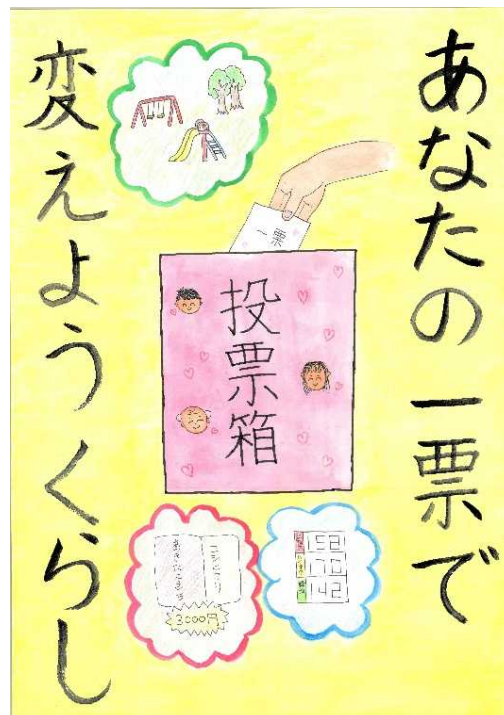 あなたの一票で
変えようくらし
一票
投票箱
3000円
152
142